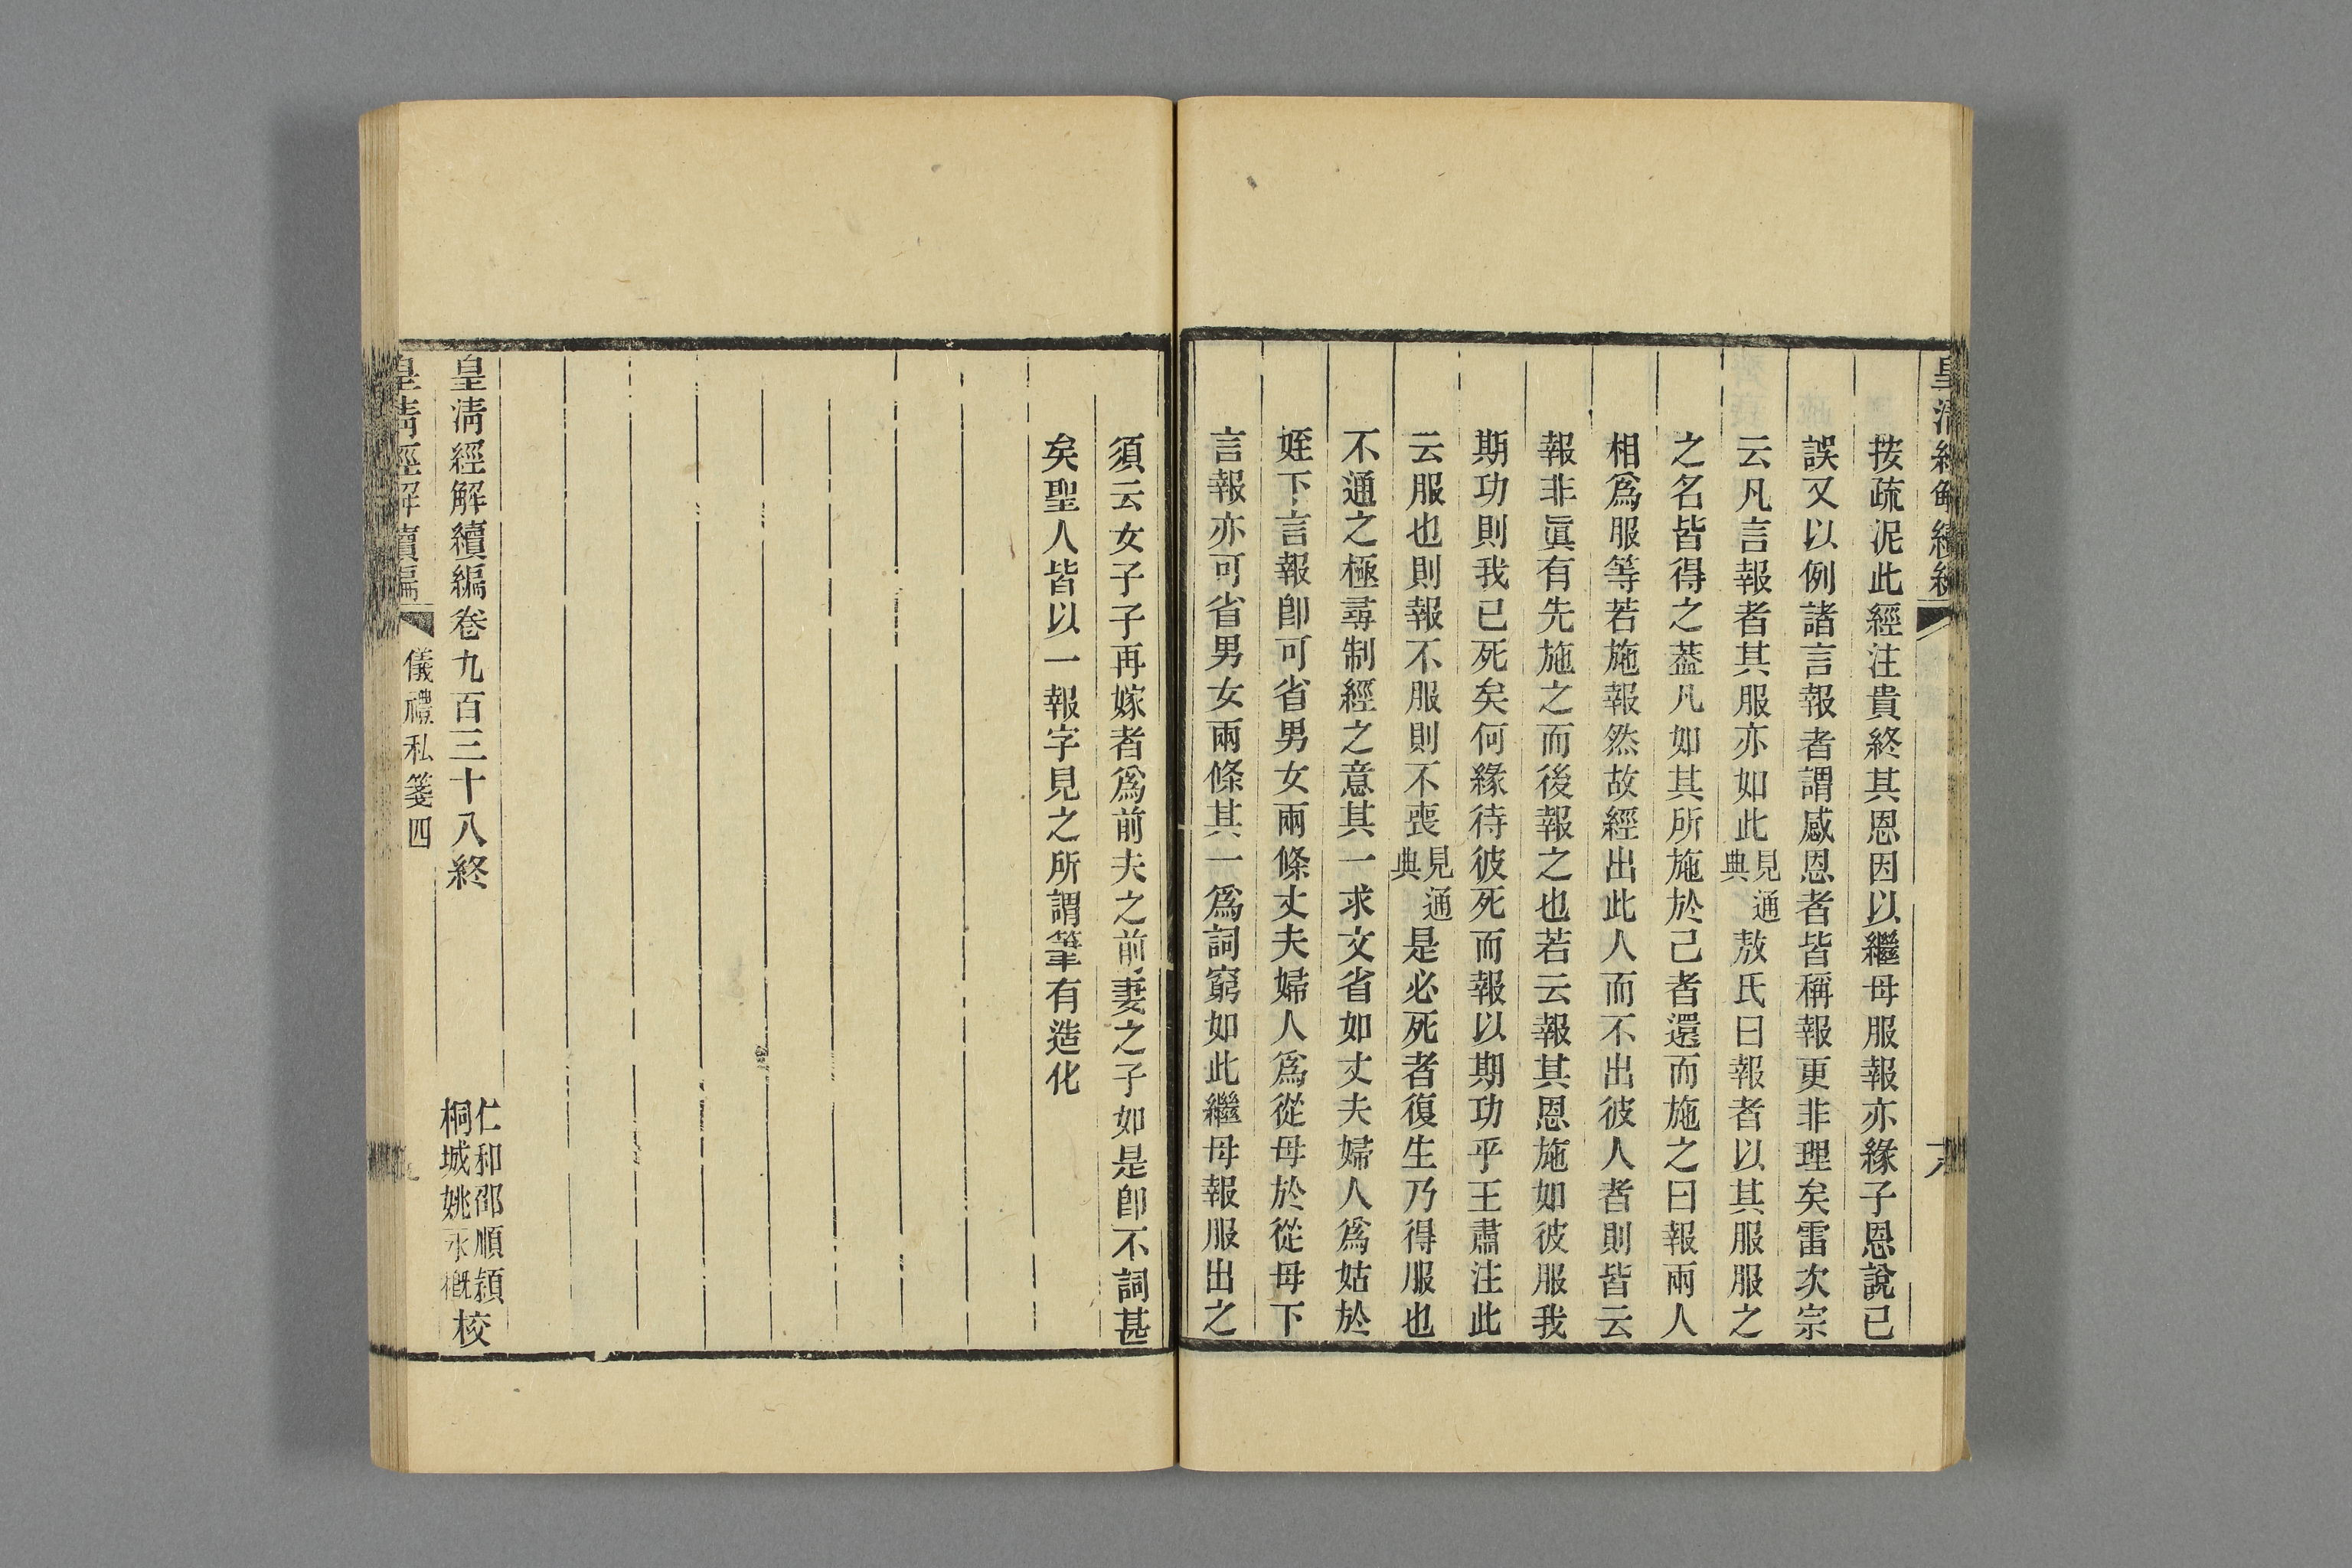 皇清經解續編
按疏泥此經注貴終其恩因以繼母服報亦緣子恩說已
誤又以例諸言報者謂感恩者皆稱報更非理矣雷次宗
云凡言報者其服亦如此見通典敖氏曰報者以其服服之
之名皆得之葢凡如其所施於己者還而施之曰報兩人
相爲服等若施報然故經出此人而不出彼人者則皆云
報非眞有先施之而後報之也若云報其恩施如彼服我
期功則我已死矣何緣待彼死而報以期功乎王肅注此
云服也則報不服則不喪見通典是必死者復生乃得服也
不通之極尋制經之意其一求文省如丈夫婦人爲姑於
姪下言報卽可省男女兩條丈夫婦人爲從母於從母下
言報亦可省男女兩條其一爲詞窮如此繼母報服出之
須云女子子再嫁者爲前夫之前妻之子如是卽不詞甚
矣聖人皆以一報字見之所謂筆有造化
皇清經解續編卷九百三十八終
仁和邵順潁
桐城姚永概
校
皇清經解續編
儀禮私箋四